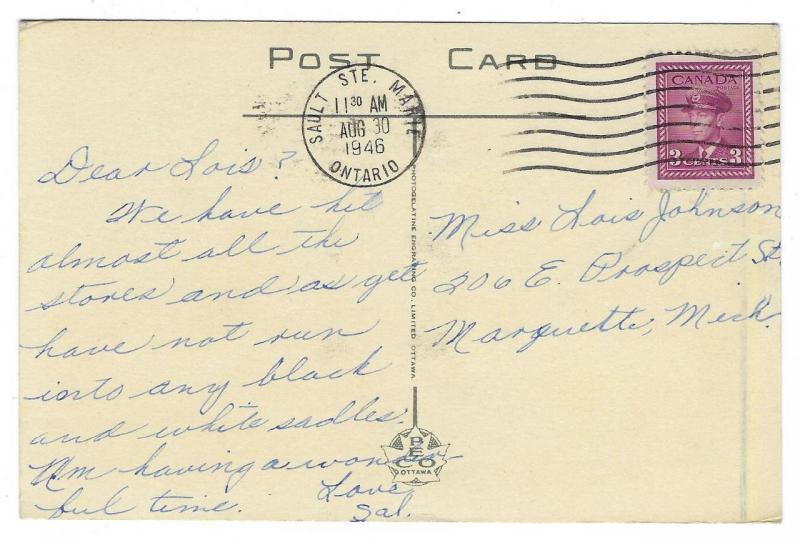 POST CARD
SAULT STE. MARIE
11 30 AM
AUG 30
1946
ONTARIO
CANADA
POSTAGE
3 CENTS 3
Dear Lois?
We have hit
almost all the
stores and as yet
have not run
into any black
and white sadles.
Am having a wonder-
ful time.
Love,
Sal.
PHOTOGELATINE ENGRAVING CO. LIMITED OTTAWA
PECO
OTTAWA
Miss Lois Johnson
206 E. Prospect St.
Marquette, Mich.